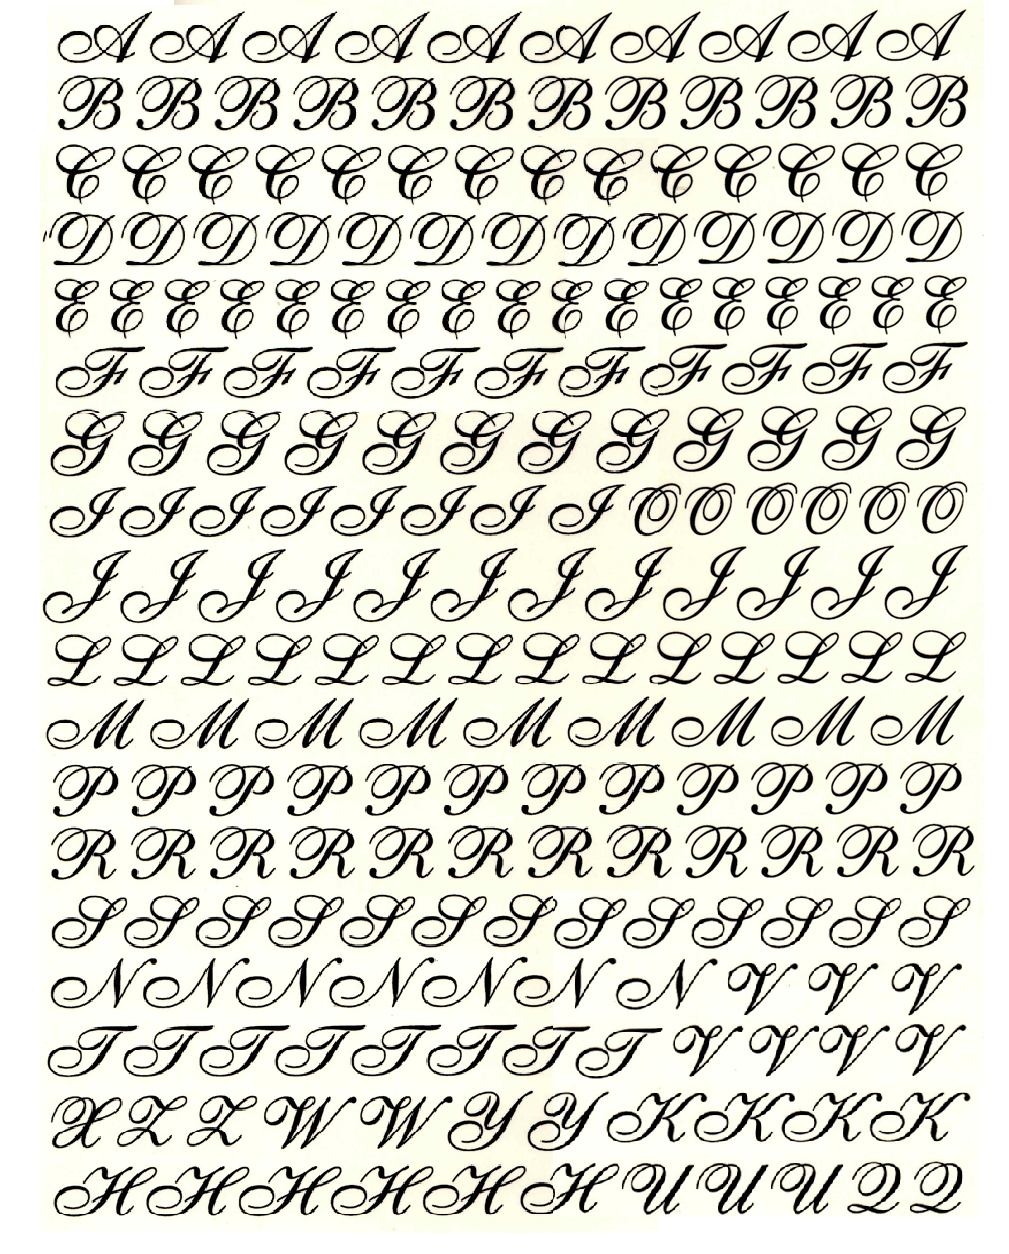 A A A A A A A A A A
B B B B B B B B B B B B
C C C C C C C C C C C C C C
D D D D D D D D D D D D D
E E E E E E E E E E E E E E E E E
F F F F F F F F F F F
G G G G G G G G G G G G
I I I I I I I I O O O O O O
J J J J J J J J J J J J
L L L L L L L L L L L L L L
M M M M M M M M M
P P P P P P P P P P P P
R R R R R R R R R R R R
S S S S S S S S S S S S S
N N N N N N N V V V
T T T T T T T T V V V V
X Z Z W W Y Y K K K K
H H H H H H U U U Q Q